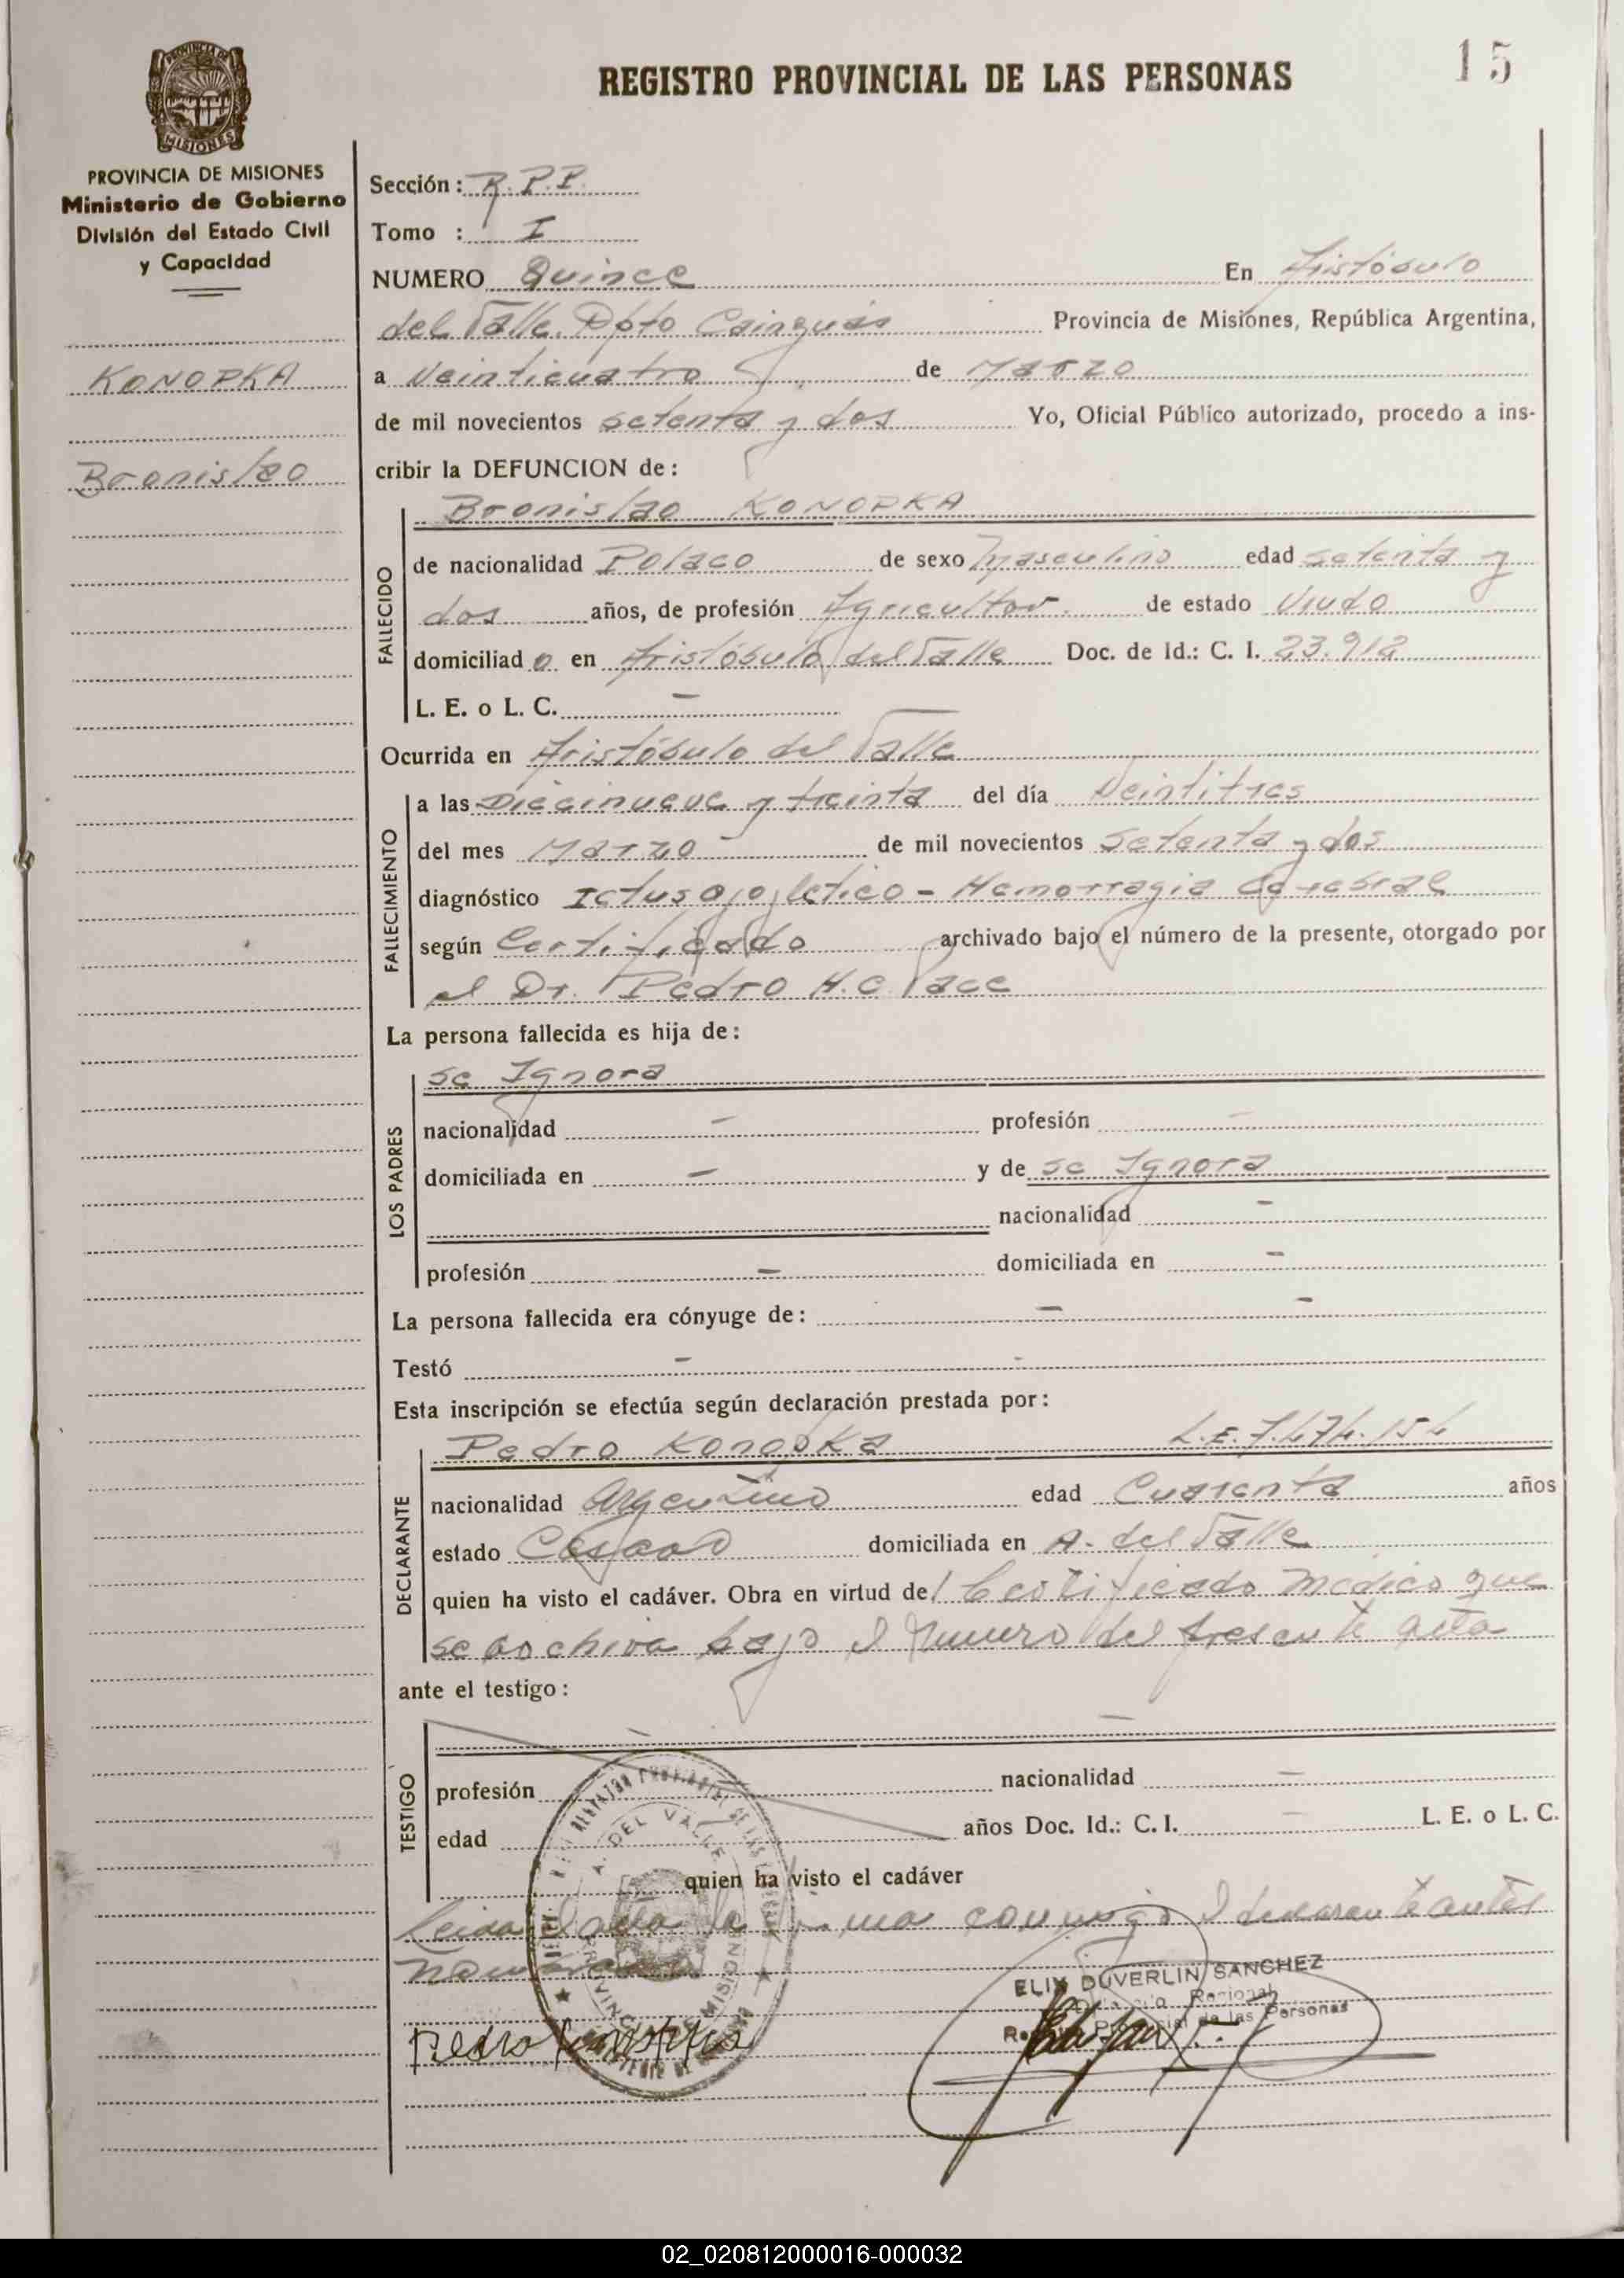 REGISTRO PROVINCIAL DE LAS PERSONAS
15
PROVINCIA DE MISIONES
Ministerio de Gobierno
División del Estado Civil
y Capacidad
KONOPKA
Bronislao
Sección: R.P.P.
Tomo : I
NUMERO Quince En Aristóbulo
del Valle Dpto Cainguás Provincia de Misiones, República Argentina,
a Veinticuatro de Marzo
de mil novecientos setenta y dos Yo, Oficial Público autorizado, procedo a ins-
cribir la DEFUNCION de:
Bronislao KONOPKA
FALLECIDO
de nacionalidad Polaco de sexo Masculino edad setenta y
dos años, de profesión Agricultor de estado Viudo
domiciliad o en Aristóbulo del Valle Doc. de Id.: C. I. 23.912
L. E. o L. C. -
Ocurrida en Aristóbulo del Valle
FALLECIMIENTO
a las Diecinueve y treinta del día Veintitres
del mes Marzo de mil novecientos Setenta y dos
diagnóstico Ictus - Hemorragia
según Certificado archivado bajo el número de la presente, otorgado por
el Dr. Pedro H.C. Pace
La persona fallecida es hija de:
se Ignora
LOS PADRES
nacionalidad - profesión -
domiciliada en - y de se Ignora
nacionalidad -
profesión - domiciliada en -
La persona fallecida era cónyuge de: - -
Testó - -
Esta inscripción se efectúa según declaración prestada por:
Pedro Konopka L.E. 7.474.154
DECLARANTE
nacionalidad Argentino edad Cuarenta años
estado Casado domiciliada en A. del Valle
quien ha visto el cadáver. Obra en virtud del Certificado médico que
se archiva bajo el Numero del presente acta
ante el testigo:
TESTIGO
profesión nacionalidad -
edad años Doc. Id.: C. I. - L. E. o L. C.
quien ha visto el cadáver
Leida el acta la firma conmigo el declarante antes
nombrado
A. DEL VALLE
ELIX DUVERLIN SANCHEZ
Regional
Registro Provincial de las Personas
Pedro Konopka
02_020812000016-000032